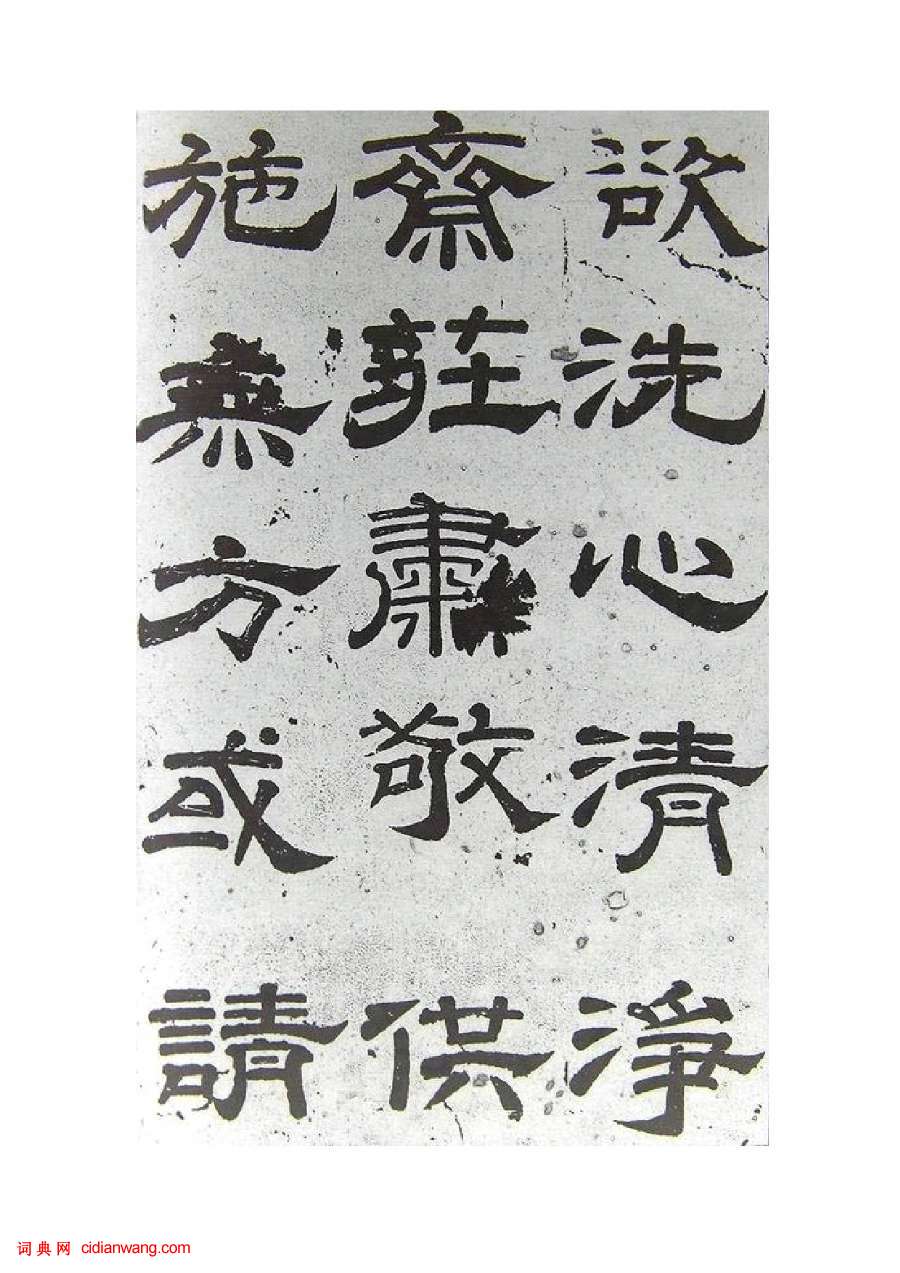 欲洗心清淨
齋莊肅敬供
施無方或請
词典网 cidianwang.com